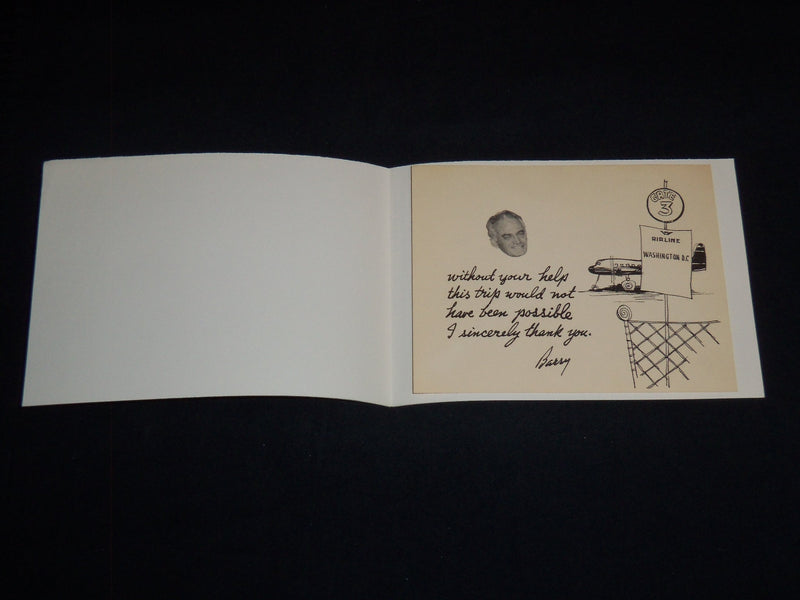 GATE
3
AIRLINE
WASHINGTON D.C
without your help
this trip would not
have been possible
I sincerely thank you.
Barry